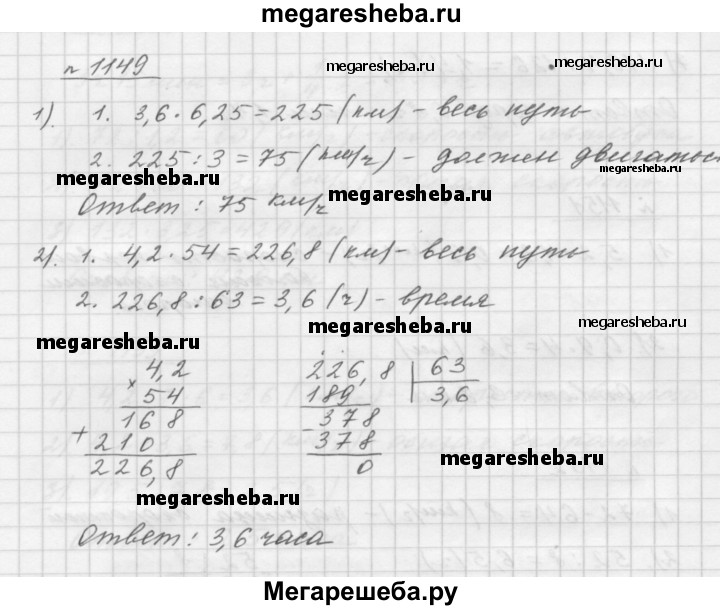 megaresheba.ru
№ 1149
megaresheba.ru
megaresheba.ru
1). 1. 3,6 · 6,25 = 225 (км) - весь путь
2. 225 : 3 = 75 (км/ч) - должен двигаться
megaresheba.ru
megaresheba.ru
megaresheba.ru
Ответ : 75 км/ч
2). 1. 4,2 · 54 = 226,8 (км) - весь путь
2. 226,8 : 63 = 3,6 (ч) - время
megaresheba.ru
megaresheba.ru
megaresheba.ru
4,2 226,8 63
× 54 189 3,6
168 - 378
+ 210 378
226,8 0
megaresheba.ru
megaresheba.ru
Ответ : 3,6 часа
Мегарешеба.ру